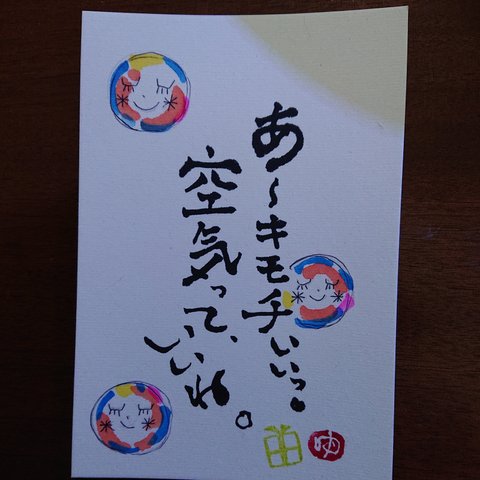 あ〜キモチいいっ。
空気って、
いいね。